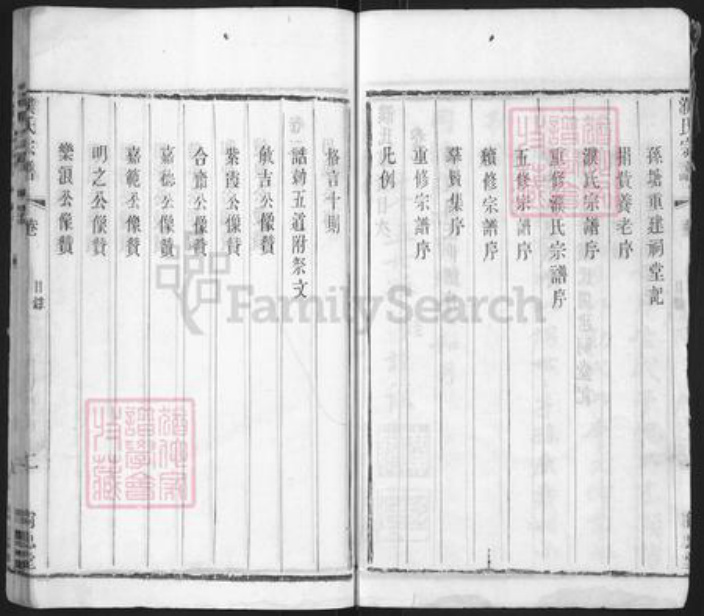 孫塘重建祠堂記
捐貲養老序
濮氏宗譜序
重修濮氏宗譜序
五修宗譜序
續修宗譜序
萃賢集序
重修宗譜序
凡例
格言十則
誥勅五道附祭文
敏吉公像贊
紫霞公像贊
合齋公像贊
嘉德公像贊
嘉範公像贊
明之公像贊
樂浪公像贊
氏宗譜
卷
目錄
FamilySearch
譜學會
珍藏